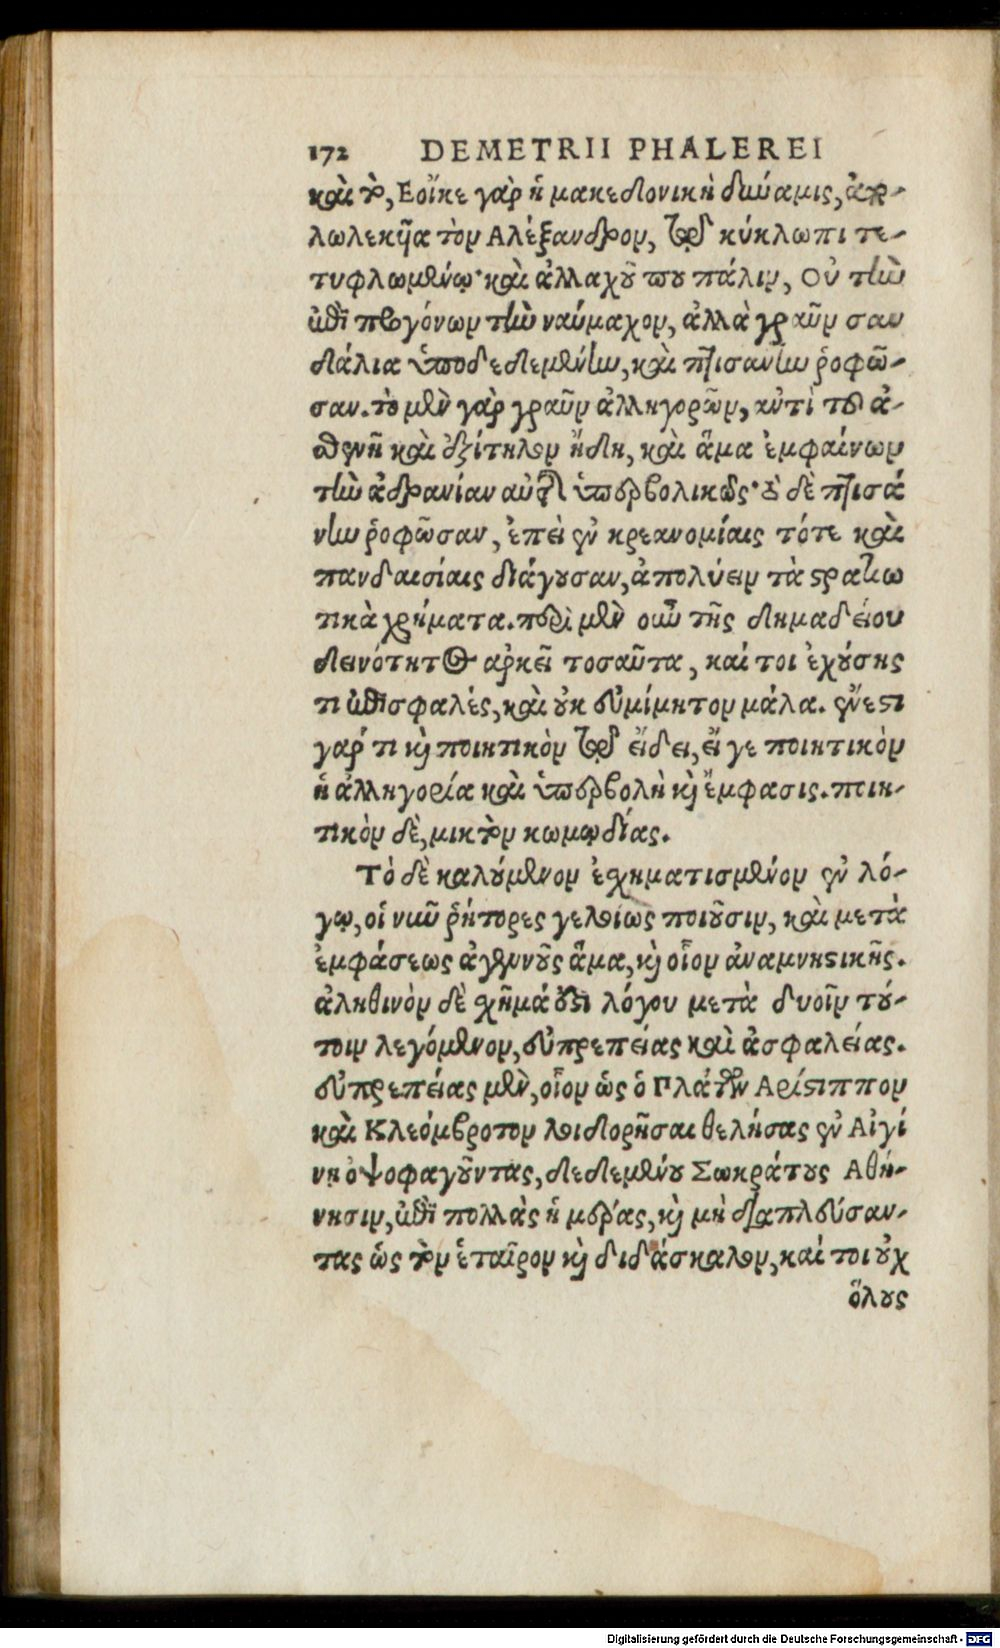 172 DEMETRII PHALEREI
καὶ τὸ, Εοἴκε γὰρ ἡ μακεδονικὴ δύναμις, ἀπο-
λωλεκῦα τὸν Αλέξανδρον, τῷ κύκλωπι τε-
τυφλωμένῳ· καὶ ἀλλαχοῦ που πάλιν, Οὐ τὴν
ἐπὶ προγόνων τὴν ναύμαχον, ἀλλὰ γραῦν σαν
δάλια ὑποδεδεμένην, καὶ πτισάνην ῥοφῶ-
σαν. τὸ μὲν γὰρ γραῦν ἀλληγορῶν, αὐτὶ τοῦ ἀ-
σθενῆ καὶ ἐξίτηλον ἤδη, καὶ ἅμα ἐμφαίνων
τὴν ἀδρανίαν αὐτῆς ὑπερβολικῶς· τὸ δὲ πτισά
νην ῥοφῶσαν, ἐπεὶ ἐν κρεανομίαις τότε καὶ
πανδαισίαις διάγουσαν, ἀπολύειν τὰ στρατιω
τικὰ χρήματα. περὶ μὲν οὖν τῆς δημαδείου
δεινότητος ἀρκεῖ τοσαῦτα, καί τοι ἐχούσης
τι ἐπισφαλές, καὶ οὐκ εὐμίμητον μάλα. ἔνεστι
γάρ τι καὶ ποιητικὸν τῷ εἴδει, εἴ γε ποιητικὸν
ἡ ἀλληγορία καὶ ὑπερβολὴ καὶ ἔμφασις. ποιη-
τικὸν δὲ, μικτὸν κωμῳδίας.
Τὸ δὲ καλούμενον ἐσχηματισμένον ἐν λό-
γῳ, οἱ νῦν ῥήτορες γελοίως ποιοῦσιν, καὶ μετὰ
ἐμφάσεως ἀγεννοῦς ἅμα, καὶ οἷον ἀναμνηστικῆς.
ἀληθινὸν δὲ σχῆμά ἐστι λόγου μετὰ δυοῖν τού-
τοιν λεγόμενον, εὐπρεπείας καὶ ἀσφαλείας.
εὐπρεπείας μὲν, οἷον ὡς ὁ Πλάτων Αρίστιππον
καὶ Κλεόμβροτον λοιδορῆσαι θελήσας ἐν Αἰγί
νῃ ὀψοφαγοῦντας, δεδεμένου Σωκράτους Αθή-
νησιν, ἐπὶ πολλὰς ἡμέρας, καὶ μὴ διαπλεύσαν-
τας ὡς τὸν ἑταῖρον καὶ διδάσκαλον, καί τοι οὐχ
ὅλους
Digitalisierung gefördert durch die Deutsche Forschungsgemeinschaft - DFG